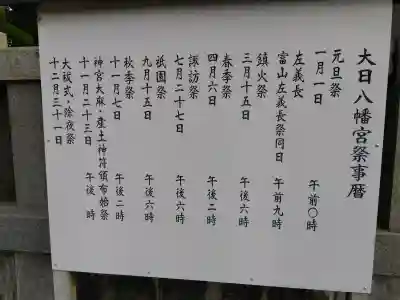 大日八幡宮祭事暦
元旦祭
一月一日　午前〇時
左義長
富山左義長祭同日　午前九時
鎮火祭
三月十五日　午後六時
春季祭
四月六日　午後二時
諏訪祭
七月二十七日　午後六時
祇園祭
九月十五日　午後六時
秋季祭
十一月七日　午後二時
神宮大麻・産土神符頒布始祭
十一月二十三日　午後　時
大祓式・除夜祭
十二月三十一日